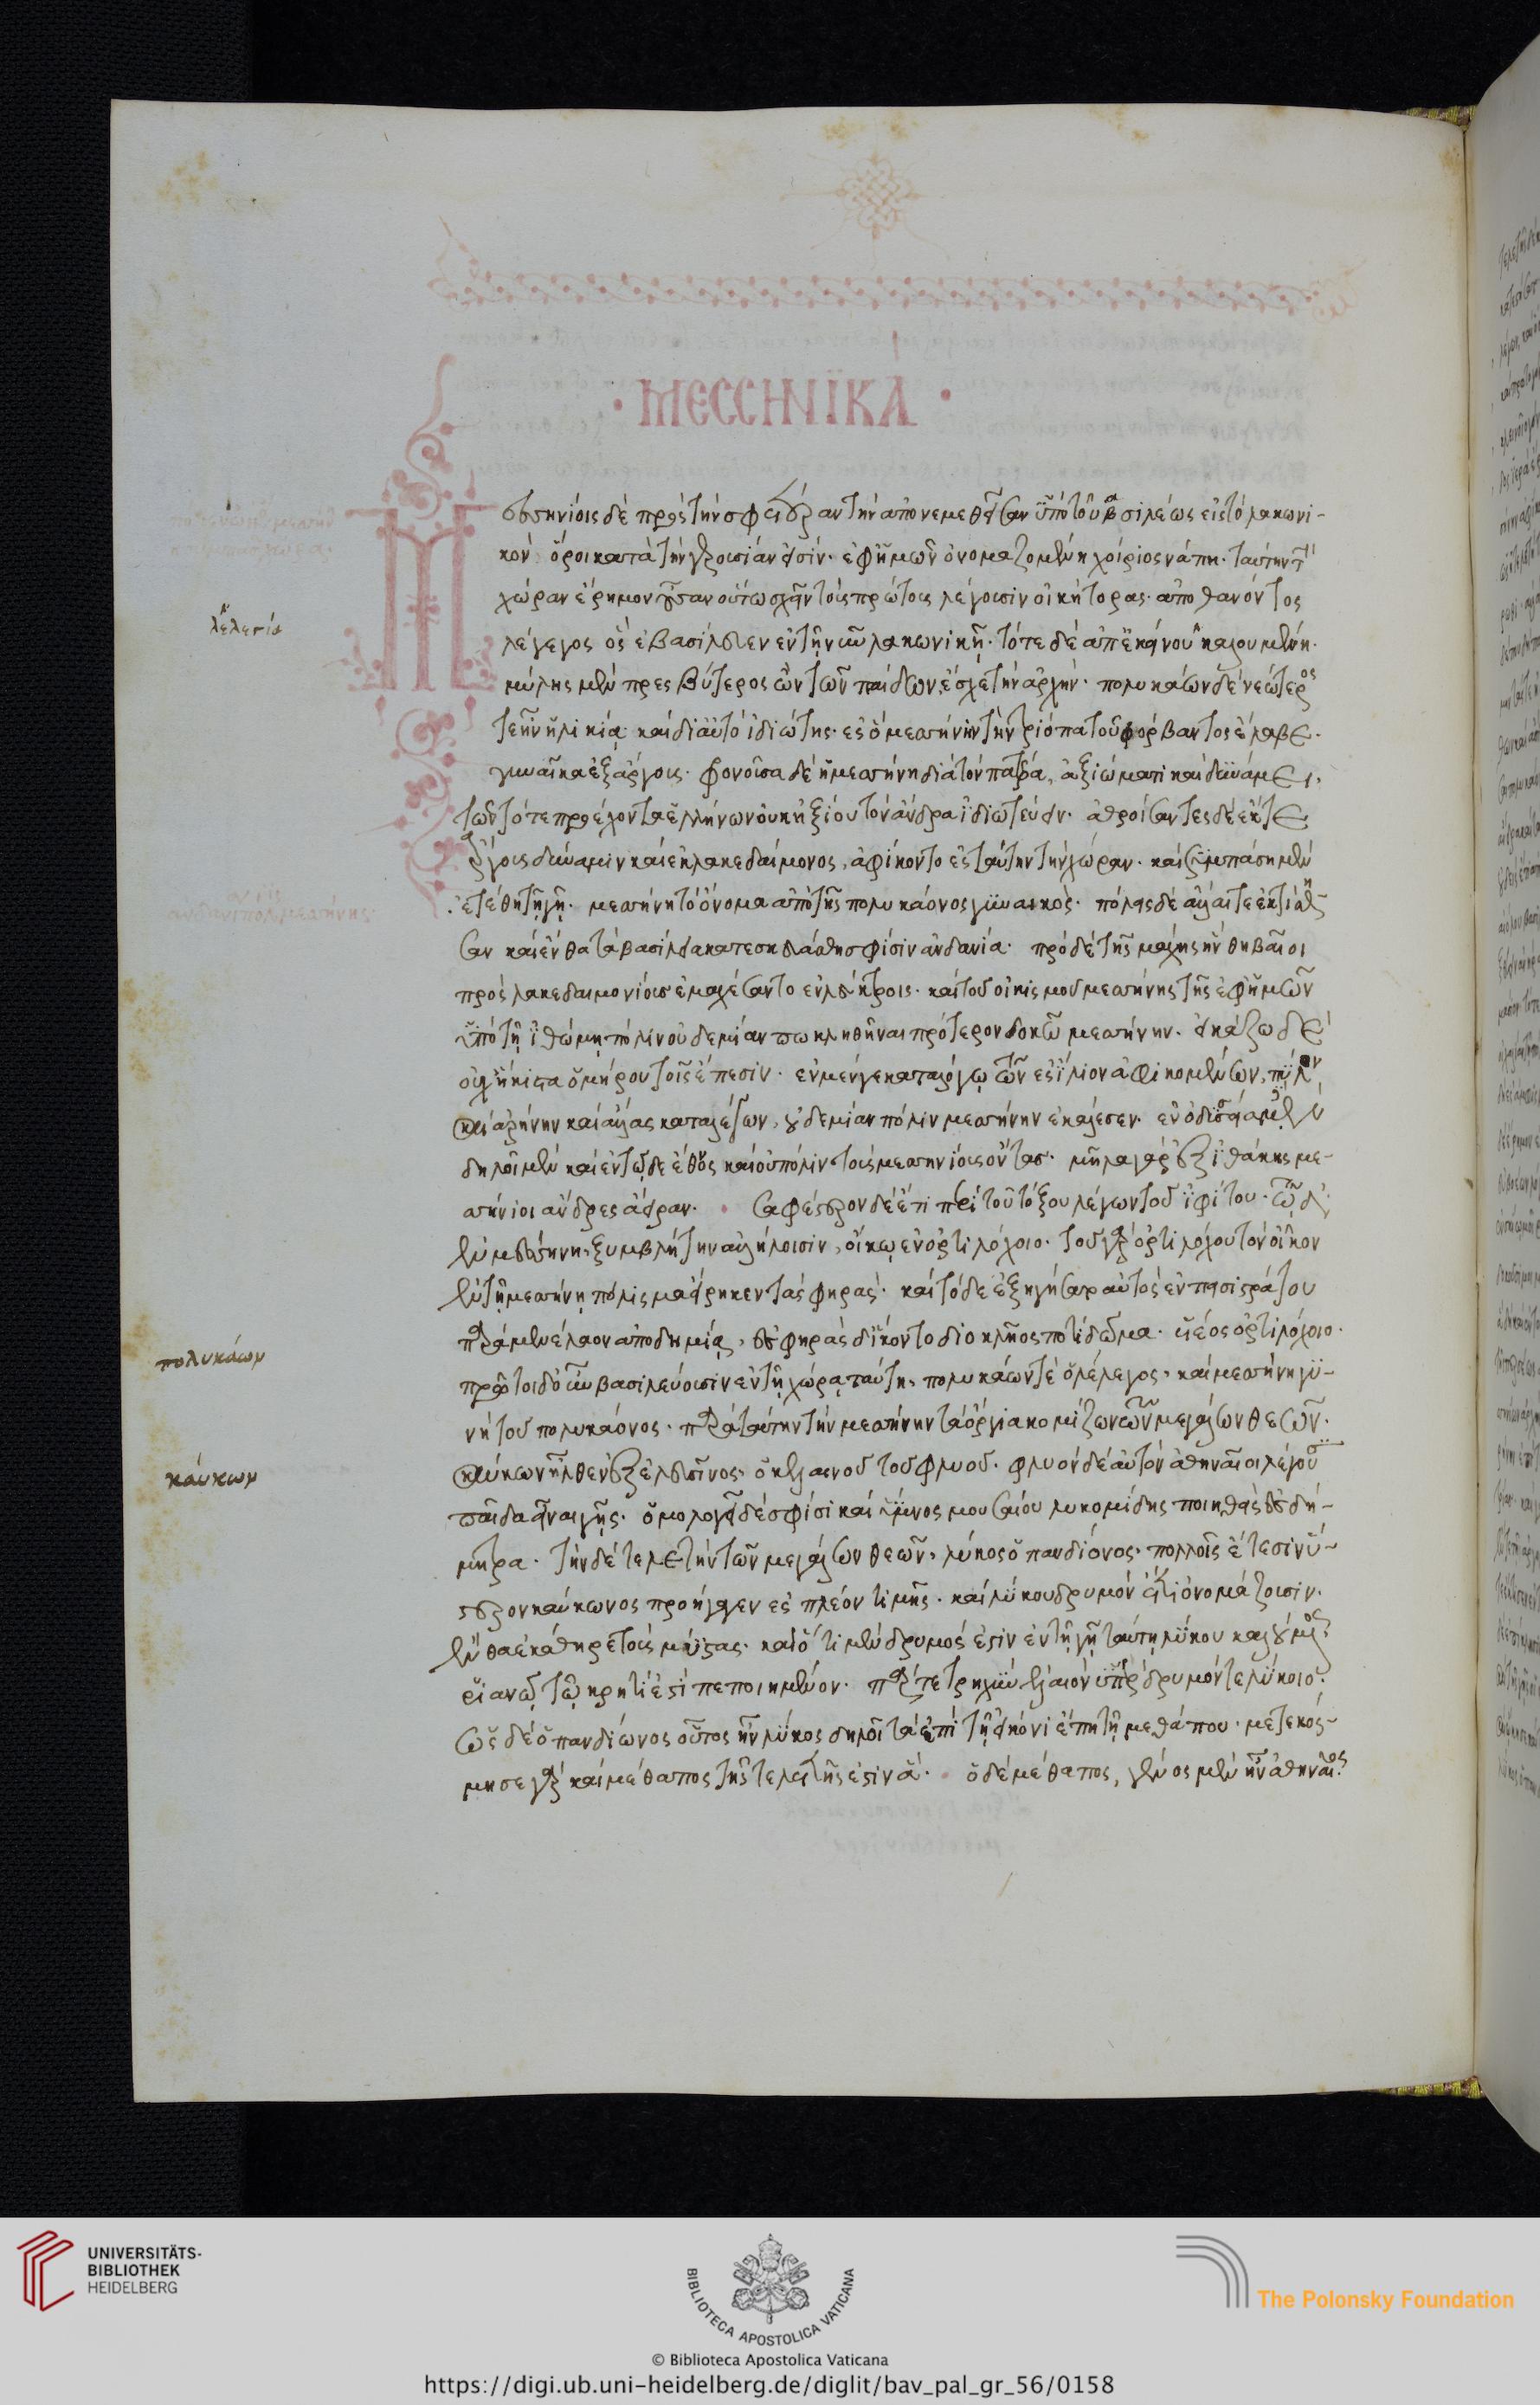 · ΜΕCCΗΝΪΚΆ ·
Μεσσηνίοις δὲ πρὸς τὴν σφετέραν τὴν ἀπονεμηθεῖσαν ὑπὸ τοῦ βασιλέως εἰς τὸ λακωνι-
κὸν ὅροι κατὰ τὴν γερουσίαν εἰσίν. ἐφ' ἡμῶν ὀνομαζομένη χοίριος νάπη. ταύτην τὴν
χώραν ἔρημον οὖσαν οὕτω σχεῖν τοὺς πρώτους λέγουσιν οἰκήτορας. ἀποθανόντος
λέλεγος ὃς ἐβασίλευεν ἐν τῇ νῦν λακωνικῇ. τότε δὲ ἀπ' ἐκείνου καλουμένη.
μύλης μὲν πρεσβύτερος ὢν τῶν παίδων, ἔσχε τὴν ἀρχήν. πολυκάων δὲ νεώτερος
τε ἦν ἡλικίᾳ καὶ δι' αὐτὸ ἰδιώτης. ἐς ὃ μεσσήνην τὴν τριόπα τοῦ φόρβαντος ἔλαβε.
γυναῖκα ἐξ ἄργους. φρονοῦσα δὲ ἡ μεσσήνη διὰ τὸν πατέρα, ἀξιώματι καὶ δυνάμει,
τῶν τότε προέχοντα ἑλλήνων οὐκ ἠξίου τὸν ἄνδρα ἰδιωτεύειν. ἀθροίσαντες δὲ ἔκ τε
ἄργους δύναμιν καὶ ἐκ λακεδαίμονος, ἀφίκοντο ἐς ταύτην τὴν χώραν. καὶ συμπάσῃ μὲν
ἐτέθη τῇ γῇ. μεσσήνη τὸ ὄνομα ἀπὸ τῆς πολυκάονος γυναικός. πόλεις δὲ ἄλλαι τε ἐκτίσθη-
σαν καὶ ἔνθα τὰ βασίλεια κατεσκευάσθη σφίσιν ἀνδανία. πρὸ δὲ τῆς μάχης ἣν θηβαῖοι
πρὸς λακεδαιμονίους ἐμαχέσαντο ἐν λεύκτροις. καὶ τοῦ οἰκισμοῦ μεσσήνης τῆς ἐφ' ἡμῶν
ὑπὸ τῇ ἰθώμῃ, πόλιν οὐδεμίαν πω κληθῆναι πρότερον δοκῶ μεσσήνην. εἰκάζω δὲ
οὐχ ἥκιστα ὁμήρου τοῖς ἔπεσιν. ἐν μέν γε καταλόγῳ τῶν ἐς ἴλιον ἀφικομένων, πύλον
καὶ ἀρήνην καὶ ἄλλας καταλέγων, οὐδεμίαν πόλιν μεσσήνην ἐκάλεσεν. ἐν ὀδυσσείᾳ
δηλοῖ μὲν καὶ ἐν τῷδε ἔθνος καὶ οὐ πόλιν τοὺς μεσσηνίους ὄντας. μῆλα γὰρ ἐξ ἰθάκης με-
σσήνιοι ἄνδρες ἄειραν. σαφέστερον δὲ ἔτι περὶ τοῦ τόξου λέγων τοῦ ἰφίτου. τὼ δ'
ἐν μεσσήνῃ, ξυμβλήτην ἀλλήλοισιν, οἴκῳ ἐν ὀρτιλόχοιο. τοῦ γὰρ ὀρτιλόχου τὸν οἶκον
ἐν τῇ μεσσήνῃ πόλισμα εἴρηκεν τὰς φηράς. καὶ τόδε ἐξηγήσατο αὐτὸς ἐν πεισιστράτου
παρὰ μενέλαον ἀποδημίᾳ, ἐς φηρὰς δ' ἵκοντο διοκλῆος ποτὶ δῶμα. υἱέος ὀρτιλόχοιο.
πρῶτοι δ' οὖν βασιλεύουσιν ἐν τῇ χώρᾳ ταύτῃ, πολυκάων τὲ ὁ λέλεγος, καὶ μεσσήνη γυ-
νὴ τοῦ πολυκάονος. παρὰ ταύτην τὴν μεσσήνην τὰ ὄργια κομίζων τῶν μεγάλων θεῶν.
καύκων ἦλθεν ἐξ ἐλευσῖνος, ὁ κελαινοῦ τοῦ φλυοῦ. φλυὸν δὲ αὐτὸν ἀθηναῖοι λέγουσι
παῖδα εἶναι γῆς. ὁμολογεῖ δέ σφίσι καὶ ὕμνος μουσαίου λυκομίδαις ποιηθεὶς ἐς δή-
μητρα. τὴν δὲ τελετὴν τῶν μεγάλων θεῶν, λύκος ὁ πανδίονος, πολλοῖς ἔτεσιν ὕ-
στερον καύκωνος προήγαγεν ἐς πλέον τιμῆς. καὶ λύκου δρυμὸν ἔτι ὀνομάζουσιν.
ἔνθα ἐκάθηρε τοὺς μύστας. καὶ ὅτι μὲν δρυμός ἐστιν ἐν τῇ γῇ ταύτῃ λύκου καλούμενος
ῥιανῷ τῷ κρητί ἐστι πεποιημένον. πάρ τε τρηχὺν ἐλαιὸν ὑπὲρ δρυμόν τε λύκοιο.
ὡς δὲ ὁ πανδίωνος οὗτος ἦν λύκος δηλοῖ τὰ ἐπὶ τῇ εἰκόνι ἔπη τῇ μεθάπου. μετεκόσ-
μησε γὰρ καὶ μέθαπος τῆς τελετῆς ἔστιν ἅ. ὁ δὲ μέθαπος, γένος μὲν ἦν ἀθηναῖος
λέλεγις
ἀνδανὶ πόλις μεσσήνης
πολυκάων
καύκων
UNIVERSITÄTS-
BIBLIOTHEK
HEIDELBERG
BIBLIOTECA APOSTOLICA VATICANA
The Polonsky Foundation
© Biblioteca Apostolica Vaticana
https://digi.ub.uni-heidelberg.de/diglit/bav_pal_gr_56/0158